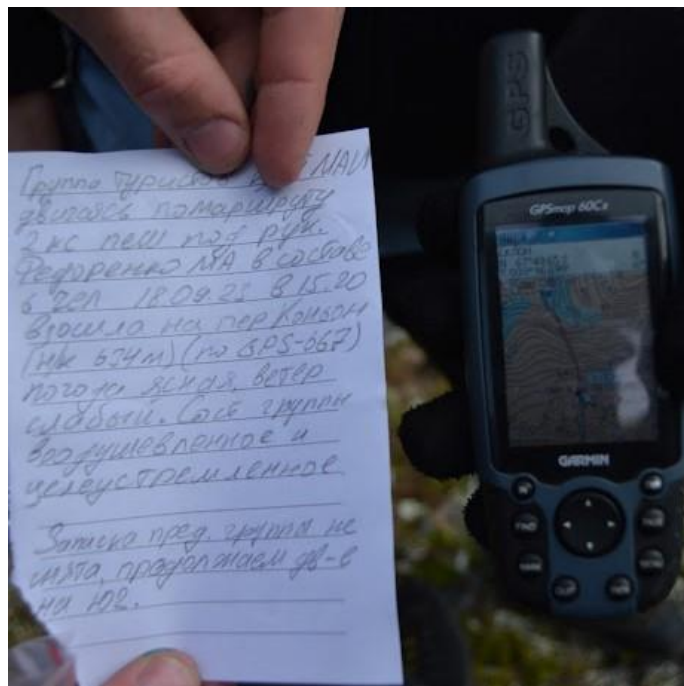 Группа туристов МАИ
двигаясь по маршруту
2 кс пеш под рук.
Федоренко МА в составе
6 чел 18.09.23 в 15.20
взошла на пер Коньюм
(н/к 634м) (по GPS-667)
погода ясная, ветер
слабый. Сост группы
воодушевленное и
целеустремленное
Записка пред. группы не
снята, продолжаем дв-е
на ЮЗ.
GPS
GPSmap 60Cx
GARMIN
FIND
PAGE
MARK
MENU
QUIT
ENTER